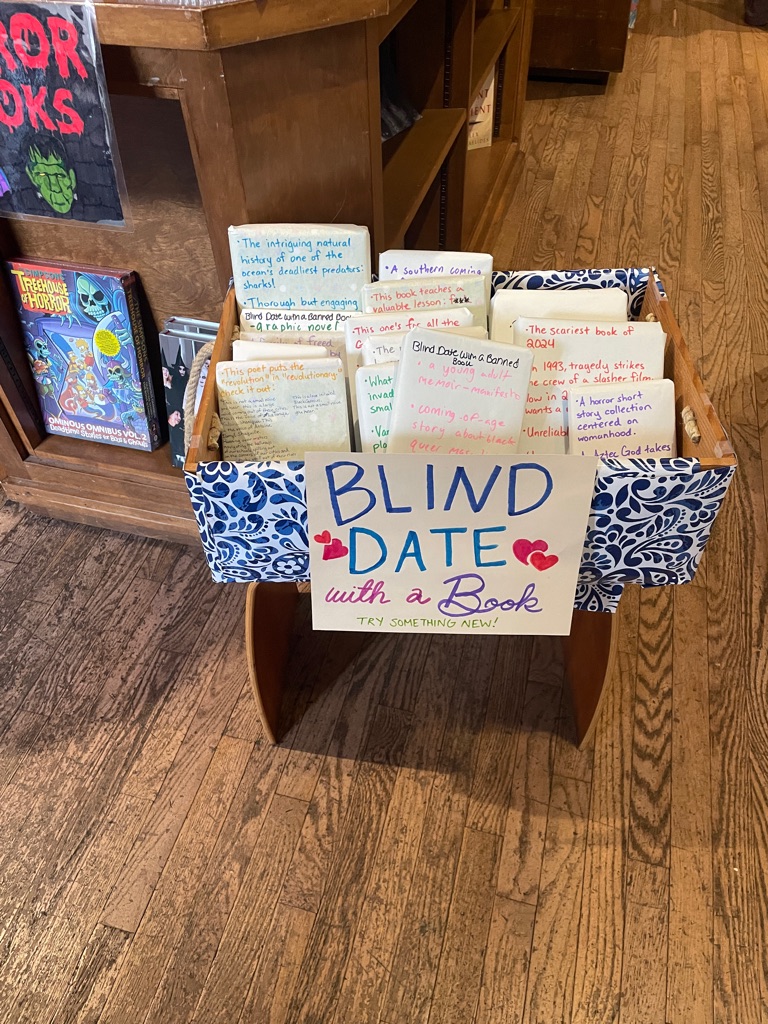 ROR
OKS
SIMPSONS
TREEHOUSE
OF HORROR
OMINOUS OMNIBUS VOL. 2
Deadtime Stories for Boos & Ghouls
• The intriguing natural
history of one of the
ocean's deadliest predators:
sharks!
• Thorough but engaging
• A southern coming
This book teaches a
valuable lesson:
Blind Date with a Banned Book
- graphic novel
This one's for all the
This poet puts the
"revolution" in "revolutionary"
check it out:
• What
invad
smal
• Var
pla
Blind Date with a Banned
Book
• a young adult
memoir-manifesto
• coming-of-age
story about black
queer
• The scariest book of
2024
1993, tragedy strikes
the crew of a slasher film
now in 2
wants a
• Unreliabl
• A horror short
story collection
centered on
womanhood.
Aztec God takes
BLIND
DATE
with a Book
TRY SOMETHING NEW!